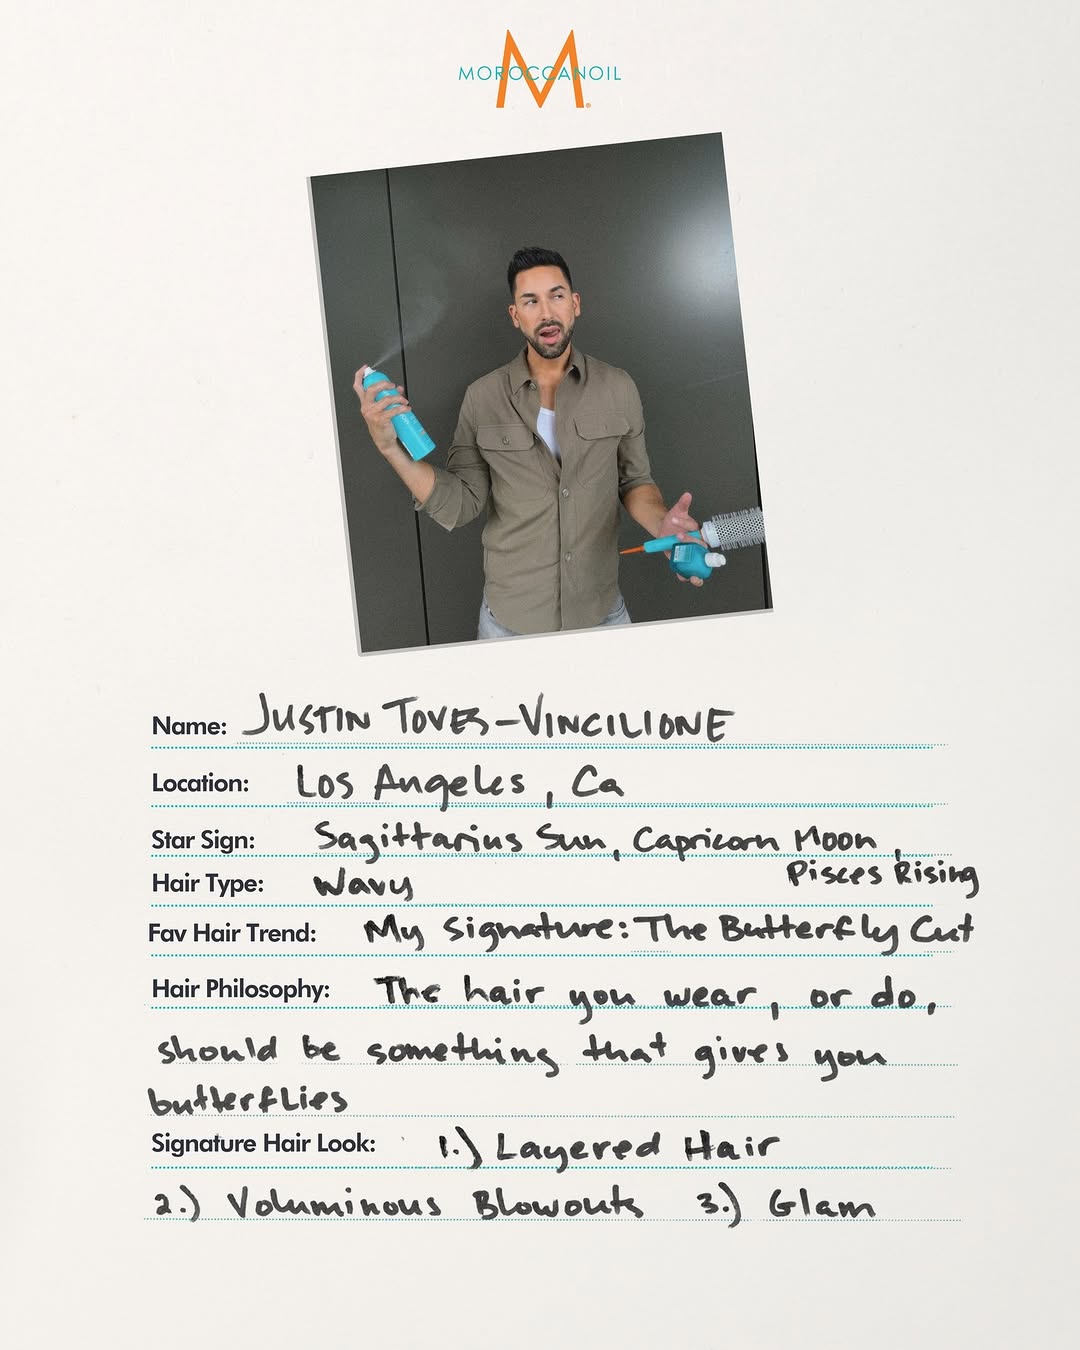 MOROCCANOIL
M®
Name: JUSTIN TOVES-VINCILIONE
Location: Los Angeles, Ca
Star Sign: Sagittarius Sun, Capricorn Moon,
Pisces Rising
Hair Type: Wavy
Fav Hair Trend: My signature: The Butterfly Cut
Hair Philosophy: The hair you wear, or do,
should be something that gives you
butterflies
Signature Hair Look: 1.) Layered Hair
2.) Voluminous Blowouts 3.) Glam